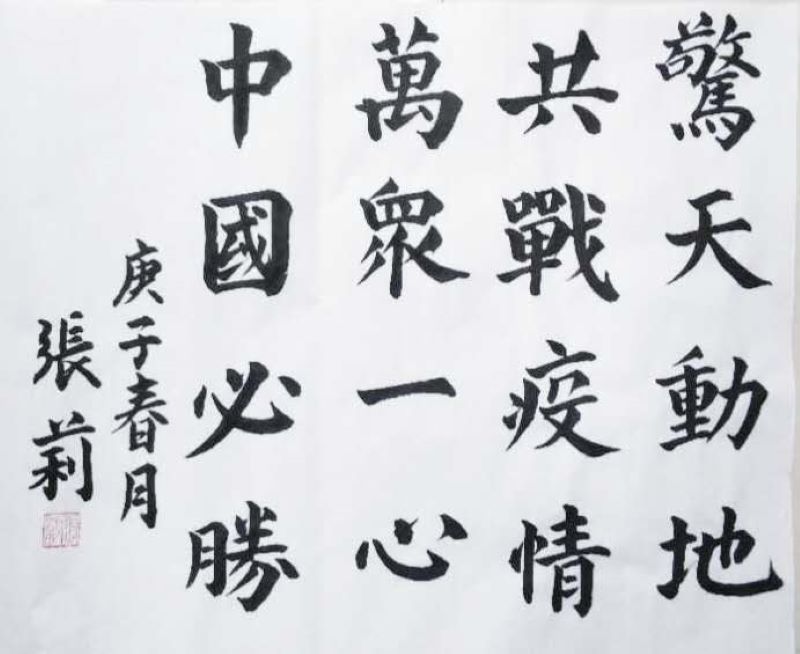 驚天動地
共戰疫情
萬眾一心
中國必勝
庚子春月
張莉